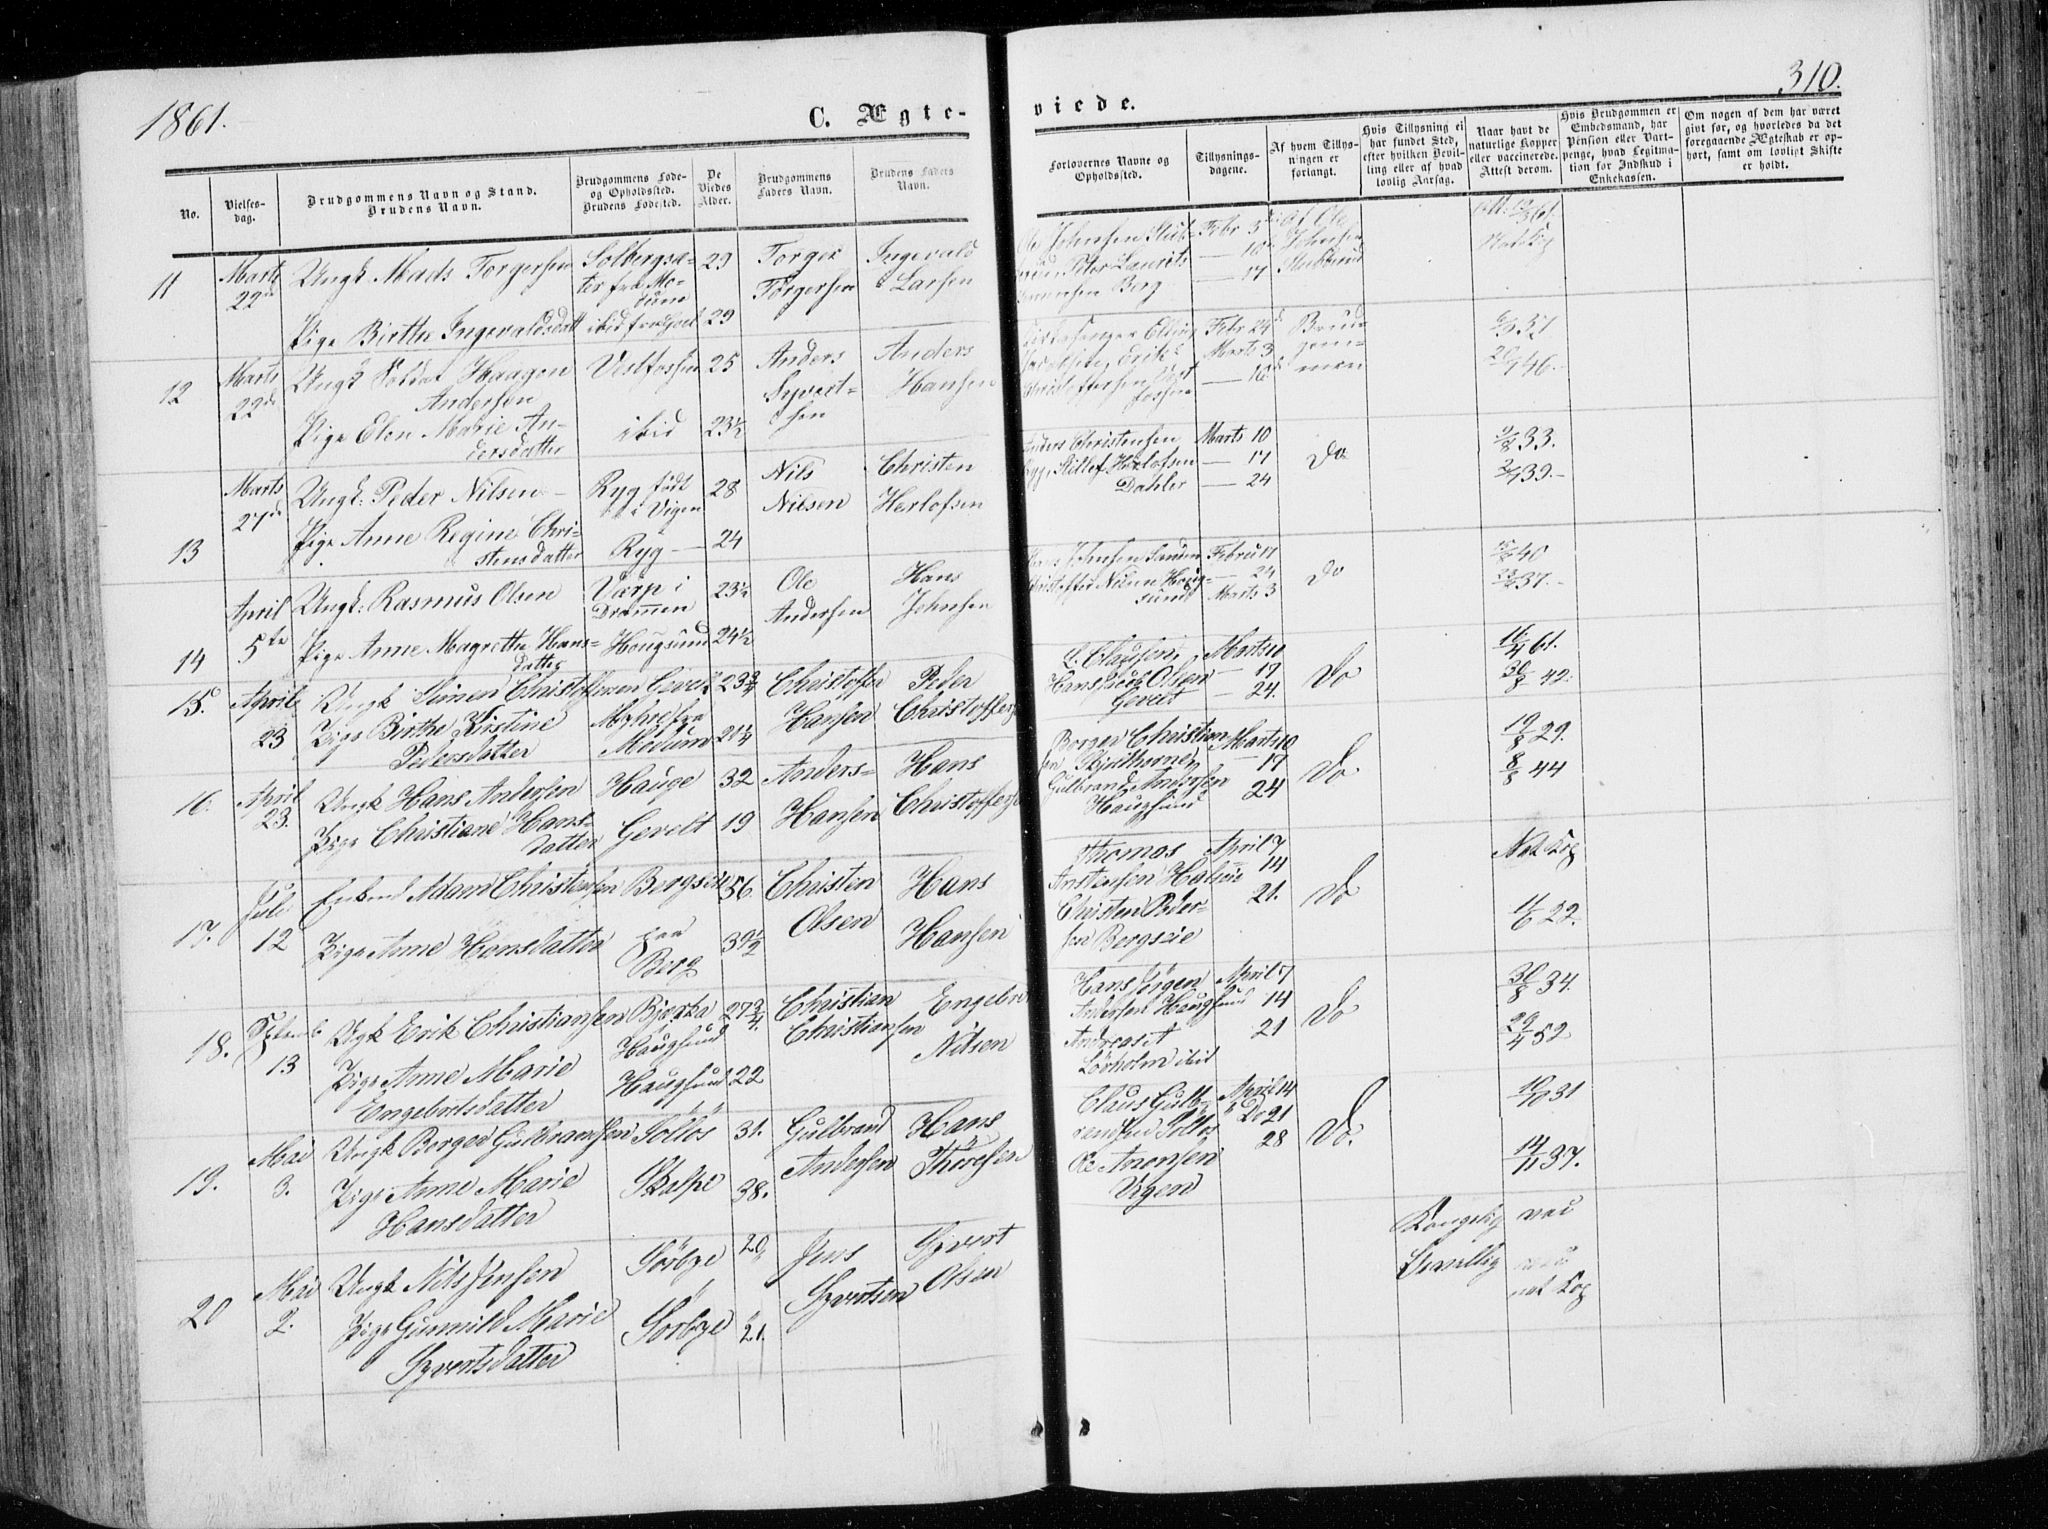 1861.
C. Ægte-
No.
Vielses-
dag.
Brudgommens Navn og Stand.
Brudens Navn.
Brudgommens Føde-
og Opholdssted.
Brudens Fødested.
De
Viedes
Alder.
Brudgommens
Faders Navn.
Brudens Faders
Navn.
11
Marts
22
Ungk. Mads Torgersen
Pige Birthe Ingevaldsdatt
Solbergsæ-
ter fra Mo-
dum
ibid fra
29
29
Torger
Torgersen
Ingevald
Larsen
12
Marts
22
Ungk Soldat Haagen
Andersen
Pige Elen Marie An-
dersdatter
Vestfossen
ibid
25
23½
Anders
Syvert-
sen
Anders
Hansen
13
Marts
27
Ungk: Peder Nilsen
Pige Anne Regine Chri-
stensdatter
Ryg født
i Vigen
Ryg
28
24
Nils
Nilsen
Christen
Herlofsen
14
April
5te
Ungk: Rasmus Olsen
Pige Anne Magrethe Hans-
datter
Værp i
Drammen
Hougsund
23½
24½
Ole
Andersen
Hans
Johnsen
15.
April
23
Ungk Simen Christoffersen
Pige Birthe Kirstine
Pedersdatter
Gevelt
Myhre fra
Modum
23¾
21¼
Christoffer
Hansen
Peder
Christoffersen
16.
April
23.
Ungk Hans Andersen
Pige Christiane Hans-
datter
Hauge
Gevelt
32
19
Anders-
Hansen
Hans
Christoffersen
17.
Juli
12
Enkmd Adam Christensen
Pige Anne Hansdatter
Bergseie
paa
Berg
56.
39½
Christen
Olsen
Hans
Hansen
18.
Septemb
13
Ugk Erik Christiansen
Pige Anne Marie
Engebretsdatter
Bjerka
Haugsund
Haugsund
27¾.
22
Christian
Christiansen
Engebret
Nilsen
19.
Mai
3.
Ungk Borger Gulbrandsen
Pige Anne Marie
Hansdatter
Solløs
Skalpe
31.
38.
Gulbrand
Andersen
Hans
Thoresen
20
Mai
2.
Ungk Nils Jensen
Pige Gunnild Marie
Syvertsdatter
Sørbye
Sørbye
29
21.
Jens
Syvertsen
Syvert
Olsen
viede.
310.
Forlovernes Navne og
Opholdssted.
Tillysnings-
dagene.
Af hvem Tillys-
ningen er
forlangt.
Hvis Tillysning ei
har fundet Sted,
efter hvilken Bevil-
ling eller af hvad
lovlig Aarsag.
Naar havt de
naturlige Kopper
eller vaccinerede.
Attest derom.
Hvis Brudgommen er
Embedsmand, har
Pension eller Vart-
penge, hvad Legitima-
tion for Indskud i
Enkekassen.
Om nogen af dem har været
givt før, og hvorledes da det
foregaaende Ægteskab er op-
hørt, samt om lovligt Skifte
er holdt.
Ole Johnsen Stub-
Peter Laurits
Berg
Febr 3
— 10
— 17
Af Ole
Johnsen
Stubberud
Nat Kop
Kirkesanger Elling
Jacobsen, Erik
Christoffersen Vest
fossen
Febr 24
Marts 3
— 10
Brud
gom-
men
37
46.
Anders Christensen
Ryg, Herlofsen
Dahler
Marts 10
— 17
— 24
Do
33.
39.
Hans Johnsen Sanden
Christoffer Nilsen Houg-
sund
Febru 17
— 24
Marts 3
Do
40
37.
L. Clausen,
Hans Jacob Olsen
Gevelt
Marts 10
— 17
— 24.
Do
16/4 61.
30/8 42.
Borger Christian
sen Hjelthornen
Gulbrand Andersen
Haugsund
Marts 10
— 17
24
Do
19/8 29.
8/8 44
Thomas
Anstensen
Christen Peder-
sen Bergseie
April 7
14
21.
Do
Nat Kop
11/6 22.
Hans Jørgen
Andersen Haugsund
Andreas A
Lørholm ibid
April 7
14
21
Do
30/8 34.
29/4 52
Claus Gulb-
randsen Solløs
Ole Aronsen
Vigen
April 14
" Do 21
28
Do.
16/10 31
14/11 37.
Kongelig
Bevillig
nat Kop